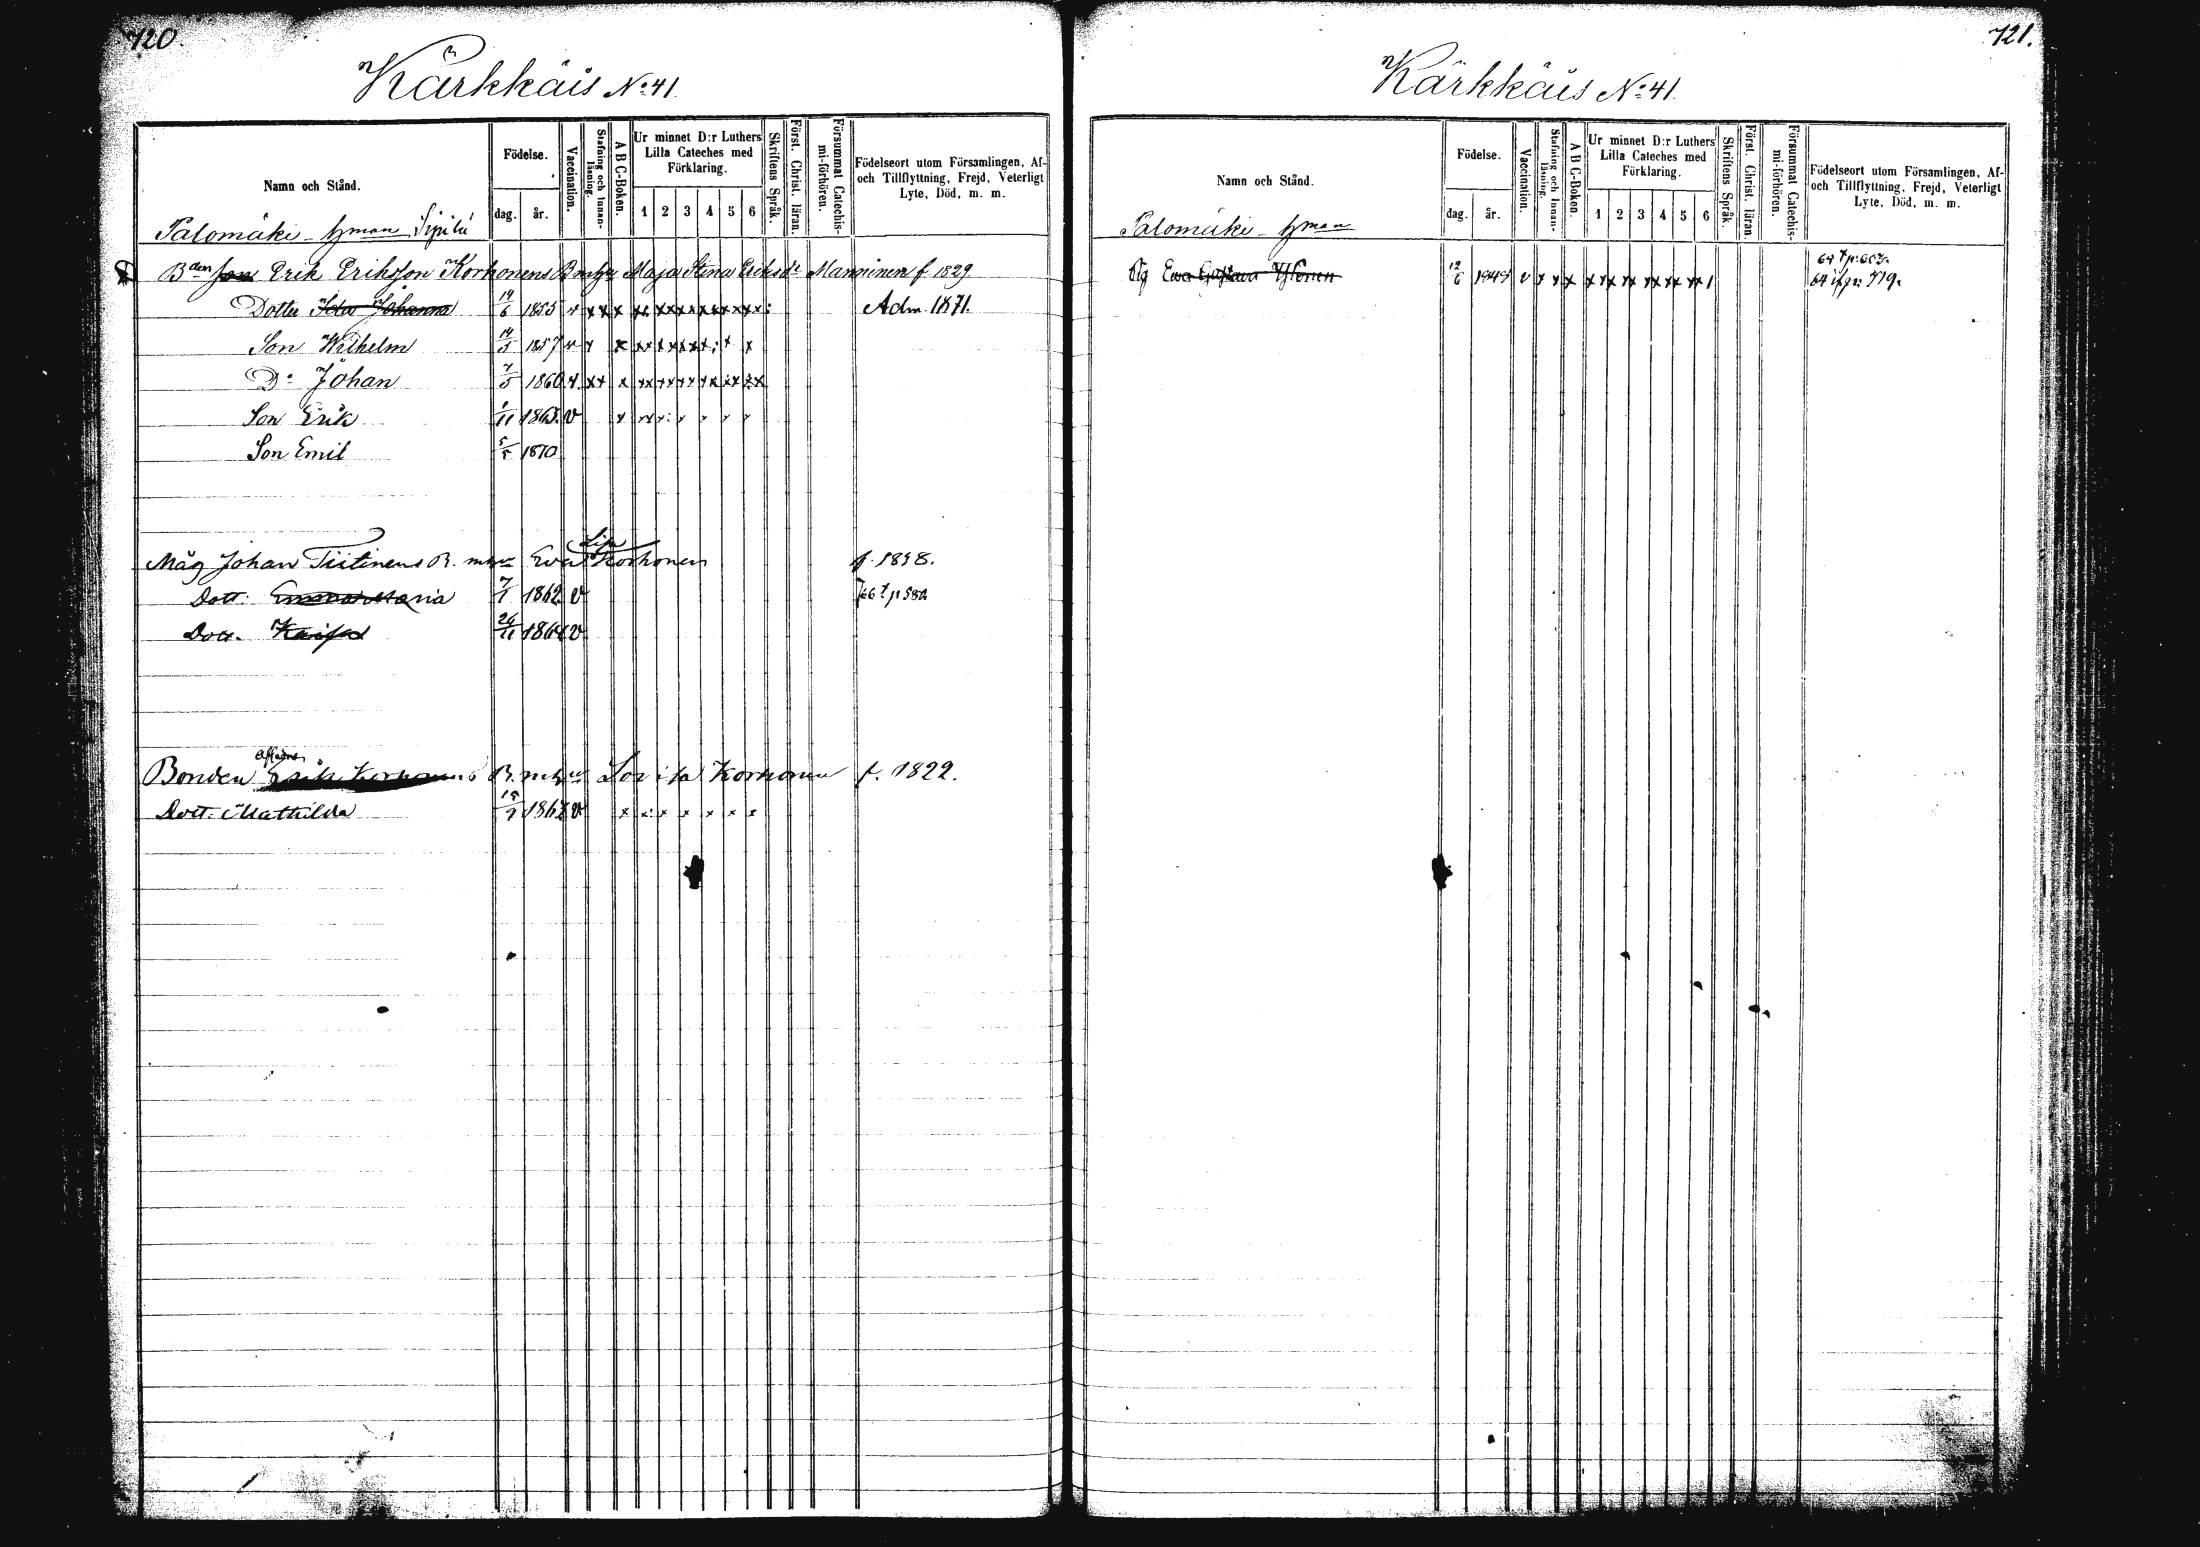 720.
Kärkkäis No: 41.
Namn och Stånd.
Födelse.
dag.
år.
Vaccination.
Stafning och Innan-läsning.
A B C-Boken.
Ur minnet D:r Luthers
Lilla Cateches med
Förklaring.
1 2 3 4 5 6
Skriftens Språk.
Först. Christ. läran.
Försummat Catechis-mi-förhören.
Födelseort utom Församlingen, Af-
och Tillflyttning, Frejd, Veterligt
Lyte, Död, m. m.
Palomäki hman Sipilä
Bden son Erik Eriksson Korhonens B mhu Maja Stina Eriksdr Manninen f 1829
Dotter Ida Johanna 14/6 1855 Adm. 1871.
Son Wilhelm 1857
Do Johan 1860
Son Erik 1/11 1865 v
Son Emil 1870
Måg Johan Tiitinens B. mhu Eva Lisa Korhonen f. 1838.
Dott. Emma Maria 7/1 1862 v
Dott. Kaisa 1864 v
Bonden Erik Korhonens B. mhu Lovisa Korhonen f. 1822.
Dott. Mathilda 1867 v
721.
Kärkkäis No: 41.
Namn och Stånd.
Födelse.
dag.
år.
Vaccination.
Stafning och Innan-läsning.
A B C-Boken.
Ur minnet D:r Luthers
Lilla Cateches med
Förklaring.
1 2 3 4 5 6
Skriftens Språk.
Först. Christ. läran.
Försummat Catechis-mi-förhören.
Födelseort utom Församlingen, Af-
och Tillflyttning, Frejd, Veterligt
Lyte, Död, m. m.
Palomäki hman
Pig Ewa Gustava Ylönen 12/6 1848 v 64 if. p: 719.